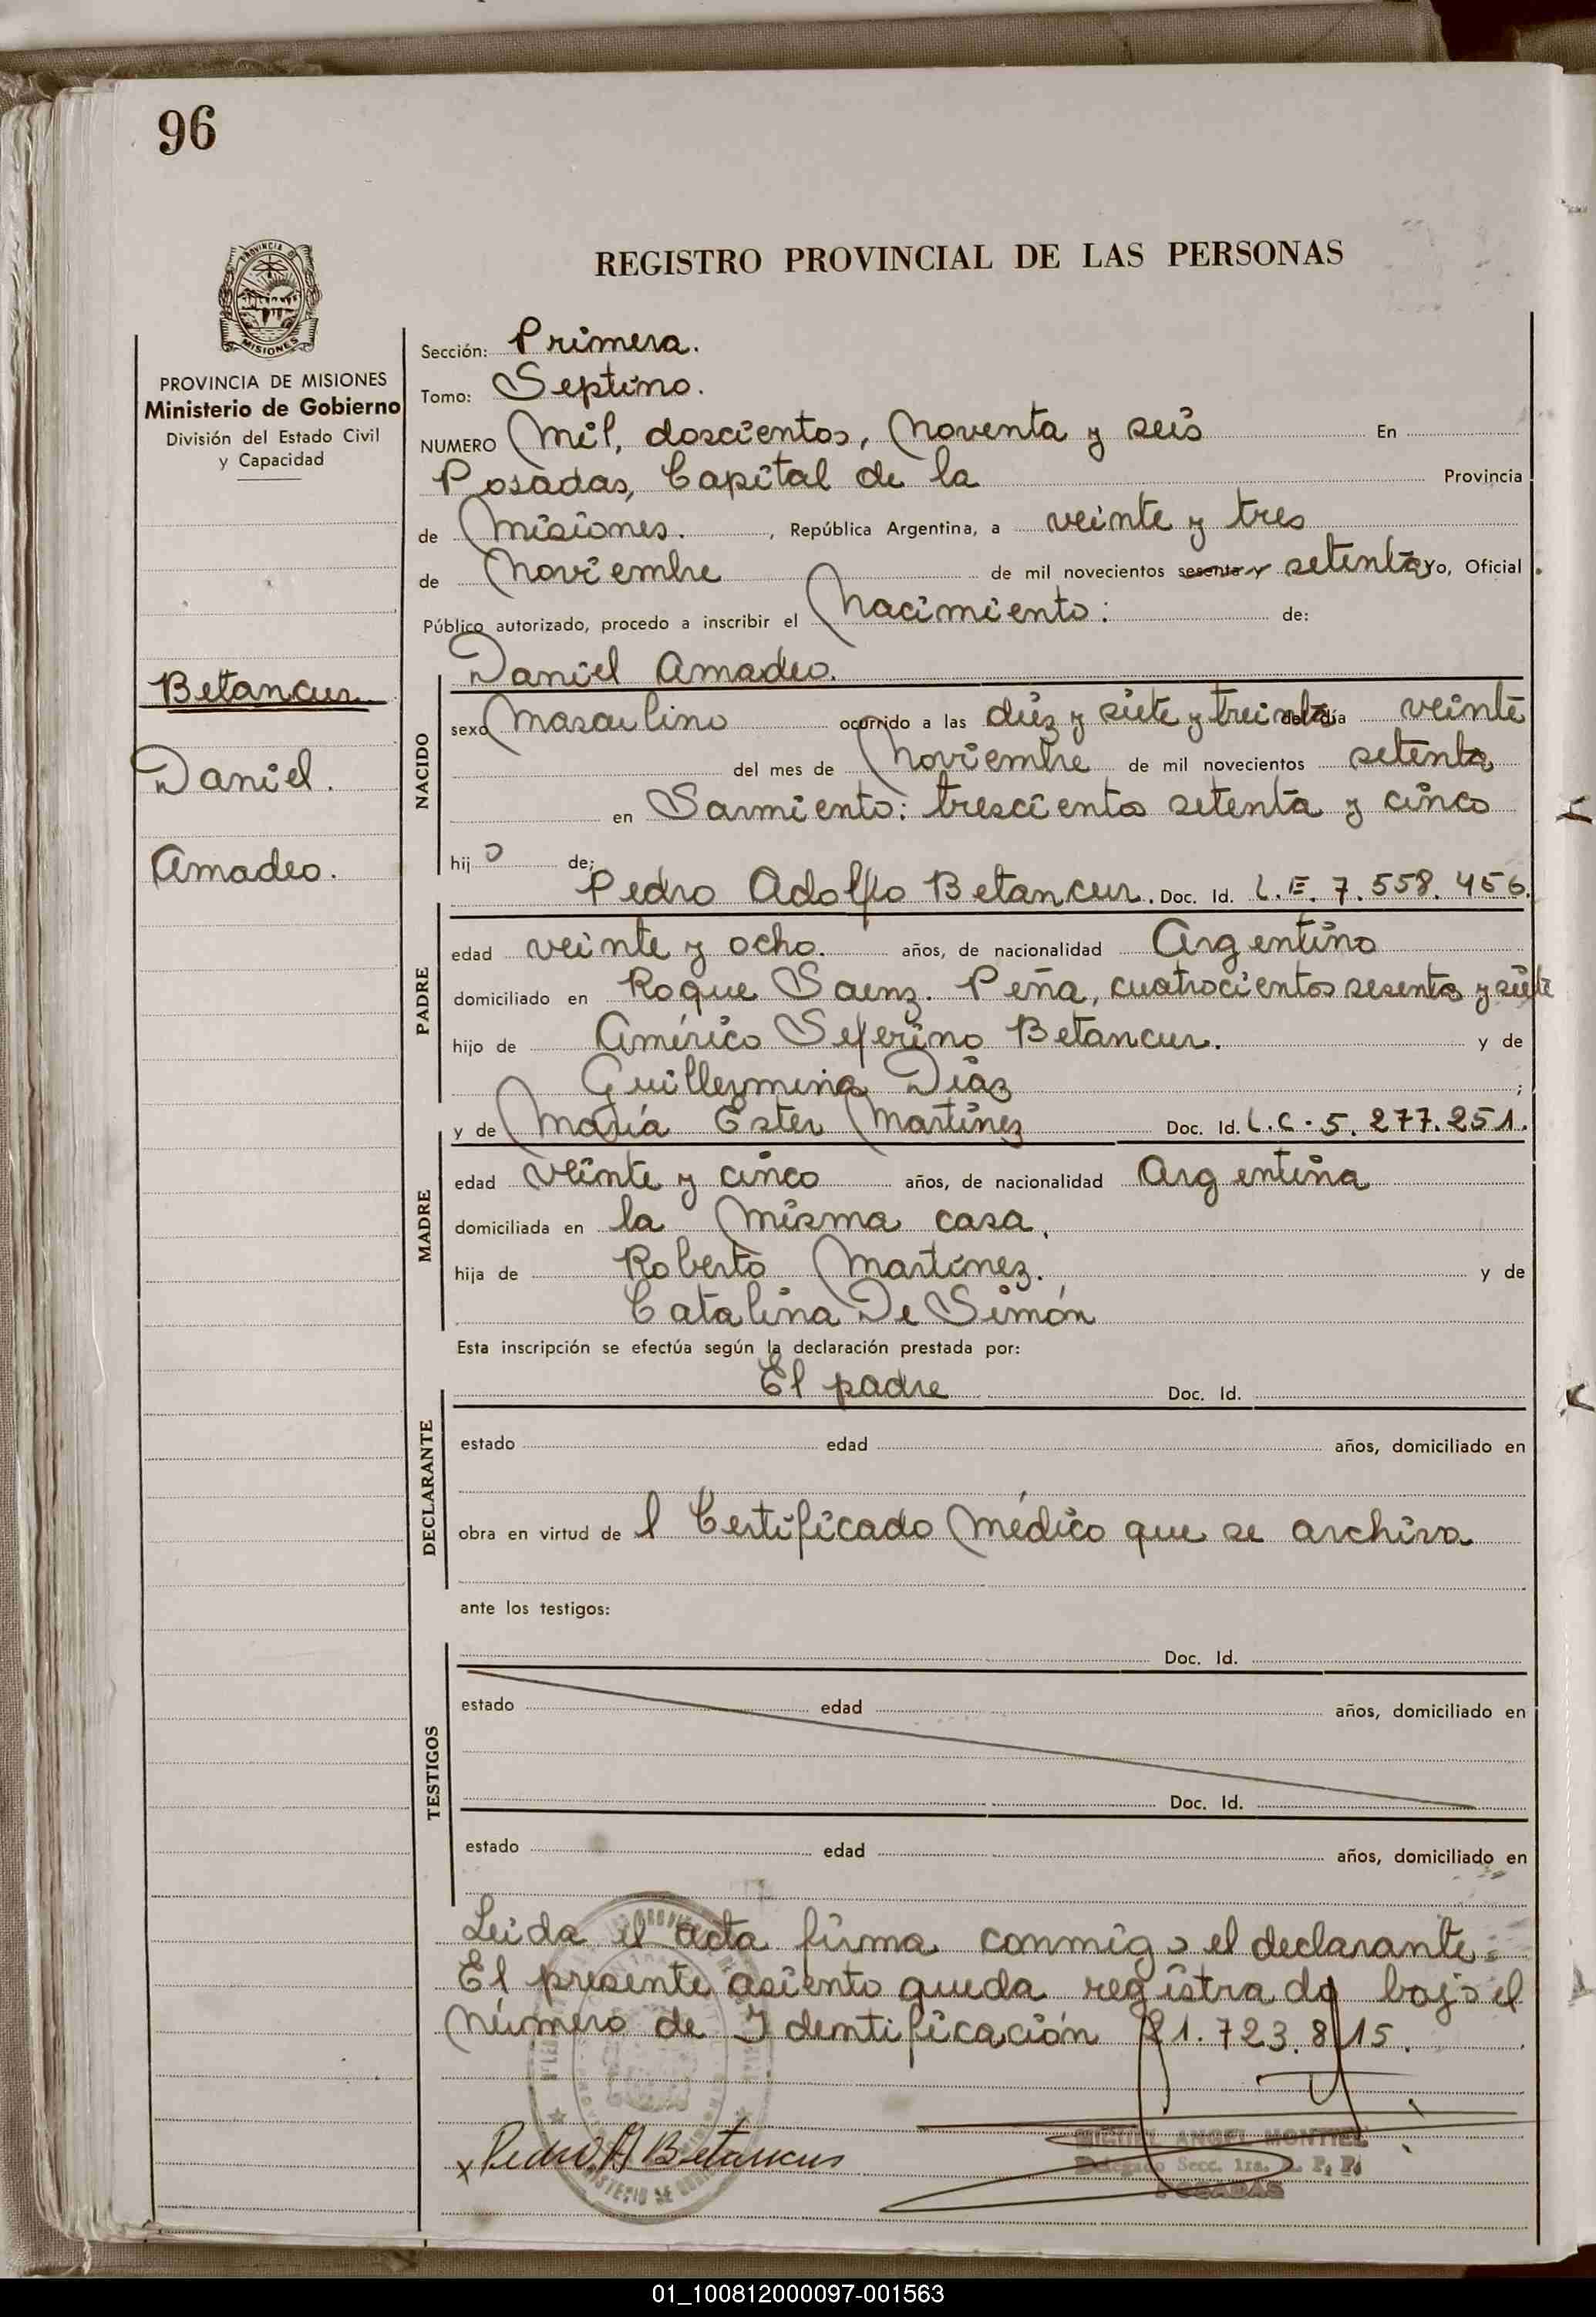 96
PROVINCIA
MISIONES
PROVINCIA DE MISIONES
Ministerio de Gobierno
División del Estado Civil
y Capacidad
Betancur
Daniel.
Amadeo.
REGISTRO PROVINCIAL DE LAS PERSONAS
Sección: Primera.
Tomo: Septimo.
NUMERO Mil, doscientos, Noventa y seis En
Posadas, Capital de la Provincia
de Misiones. , República Argentina, a veinte y tres
de Noviembre de mil novecientos sesenta y setenta Yo, Oficial
Público autorizado, procedo a inscribir el Nacimiento: de:
Daniel Amadeo.
NACIDO
sexo Masculino ocurrido a las diez y siete y treinta del día veinte
del mes de Noviembre de mil novecientos setenta
en Sarmiento: trescientos setenta y cinco
hijo de;
Pedro Adolfo Betancur. Doc. Id. L.E. 7.558.456.
PADRE
edad veinte y ocho. años, de nacionalidad Argentino
domiciliado en Roque Saenz. Peña, cuatrocientos sesenta y siete
hijo de Américo Seferino Betancur. y de
Guillermina Diaz ;
y de María Ester Martinez Doc. Id. L.C. 5.277.251.
MADRE
edad veinte y cinco años, de nacionalidad Argentina
domiciliada en la misma casa,
hija de Roberto Martinez. y de
Catalina De Simón
Esta inscripción se efectúa según la declaración prestada por:
El padre Doc. Id.
DECLARANTE
estado edad años, domiciliado en
obra en virtud de l Certificado Médico que se archiva
ante los testigos:
Doc. Id.
TESTIGOS
estado edad años, domiciliado en
Doc. Id.
estado edad años, domiciliado en
Leida el acta firma conmigo el declarante.
El presente asiento queda registrado bajo el
Número de Identificación 21.723.815.
x Pedro A Betancur
MIGUEL ANGEL MONTIEL
Delegado Secc. 1ra. R. P. P.
POSADAS
01_100812000097-001563